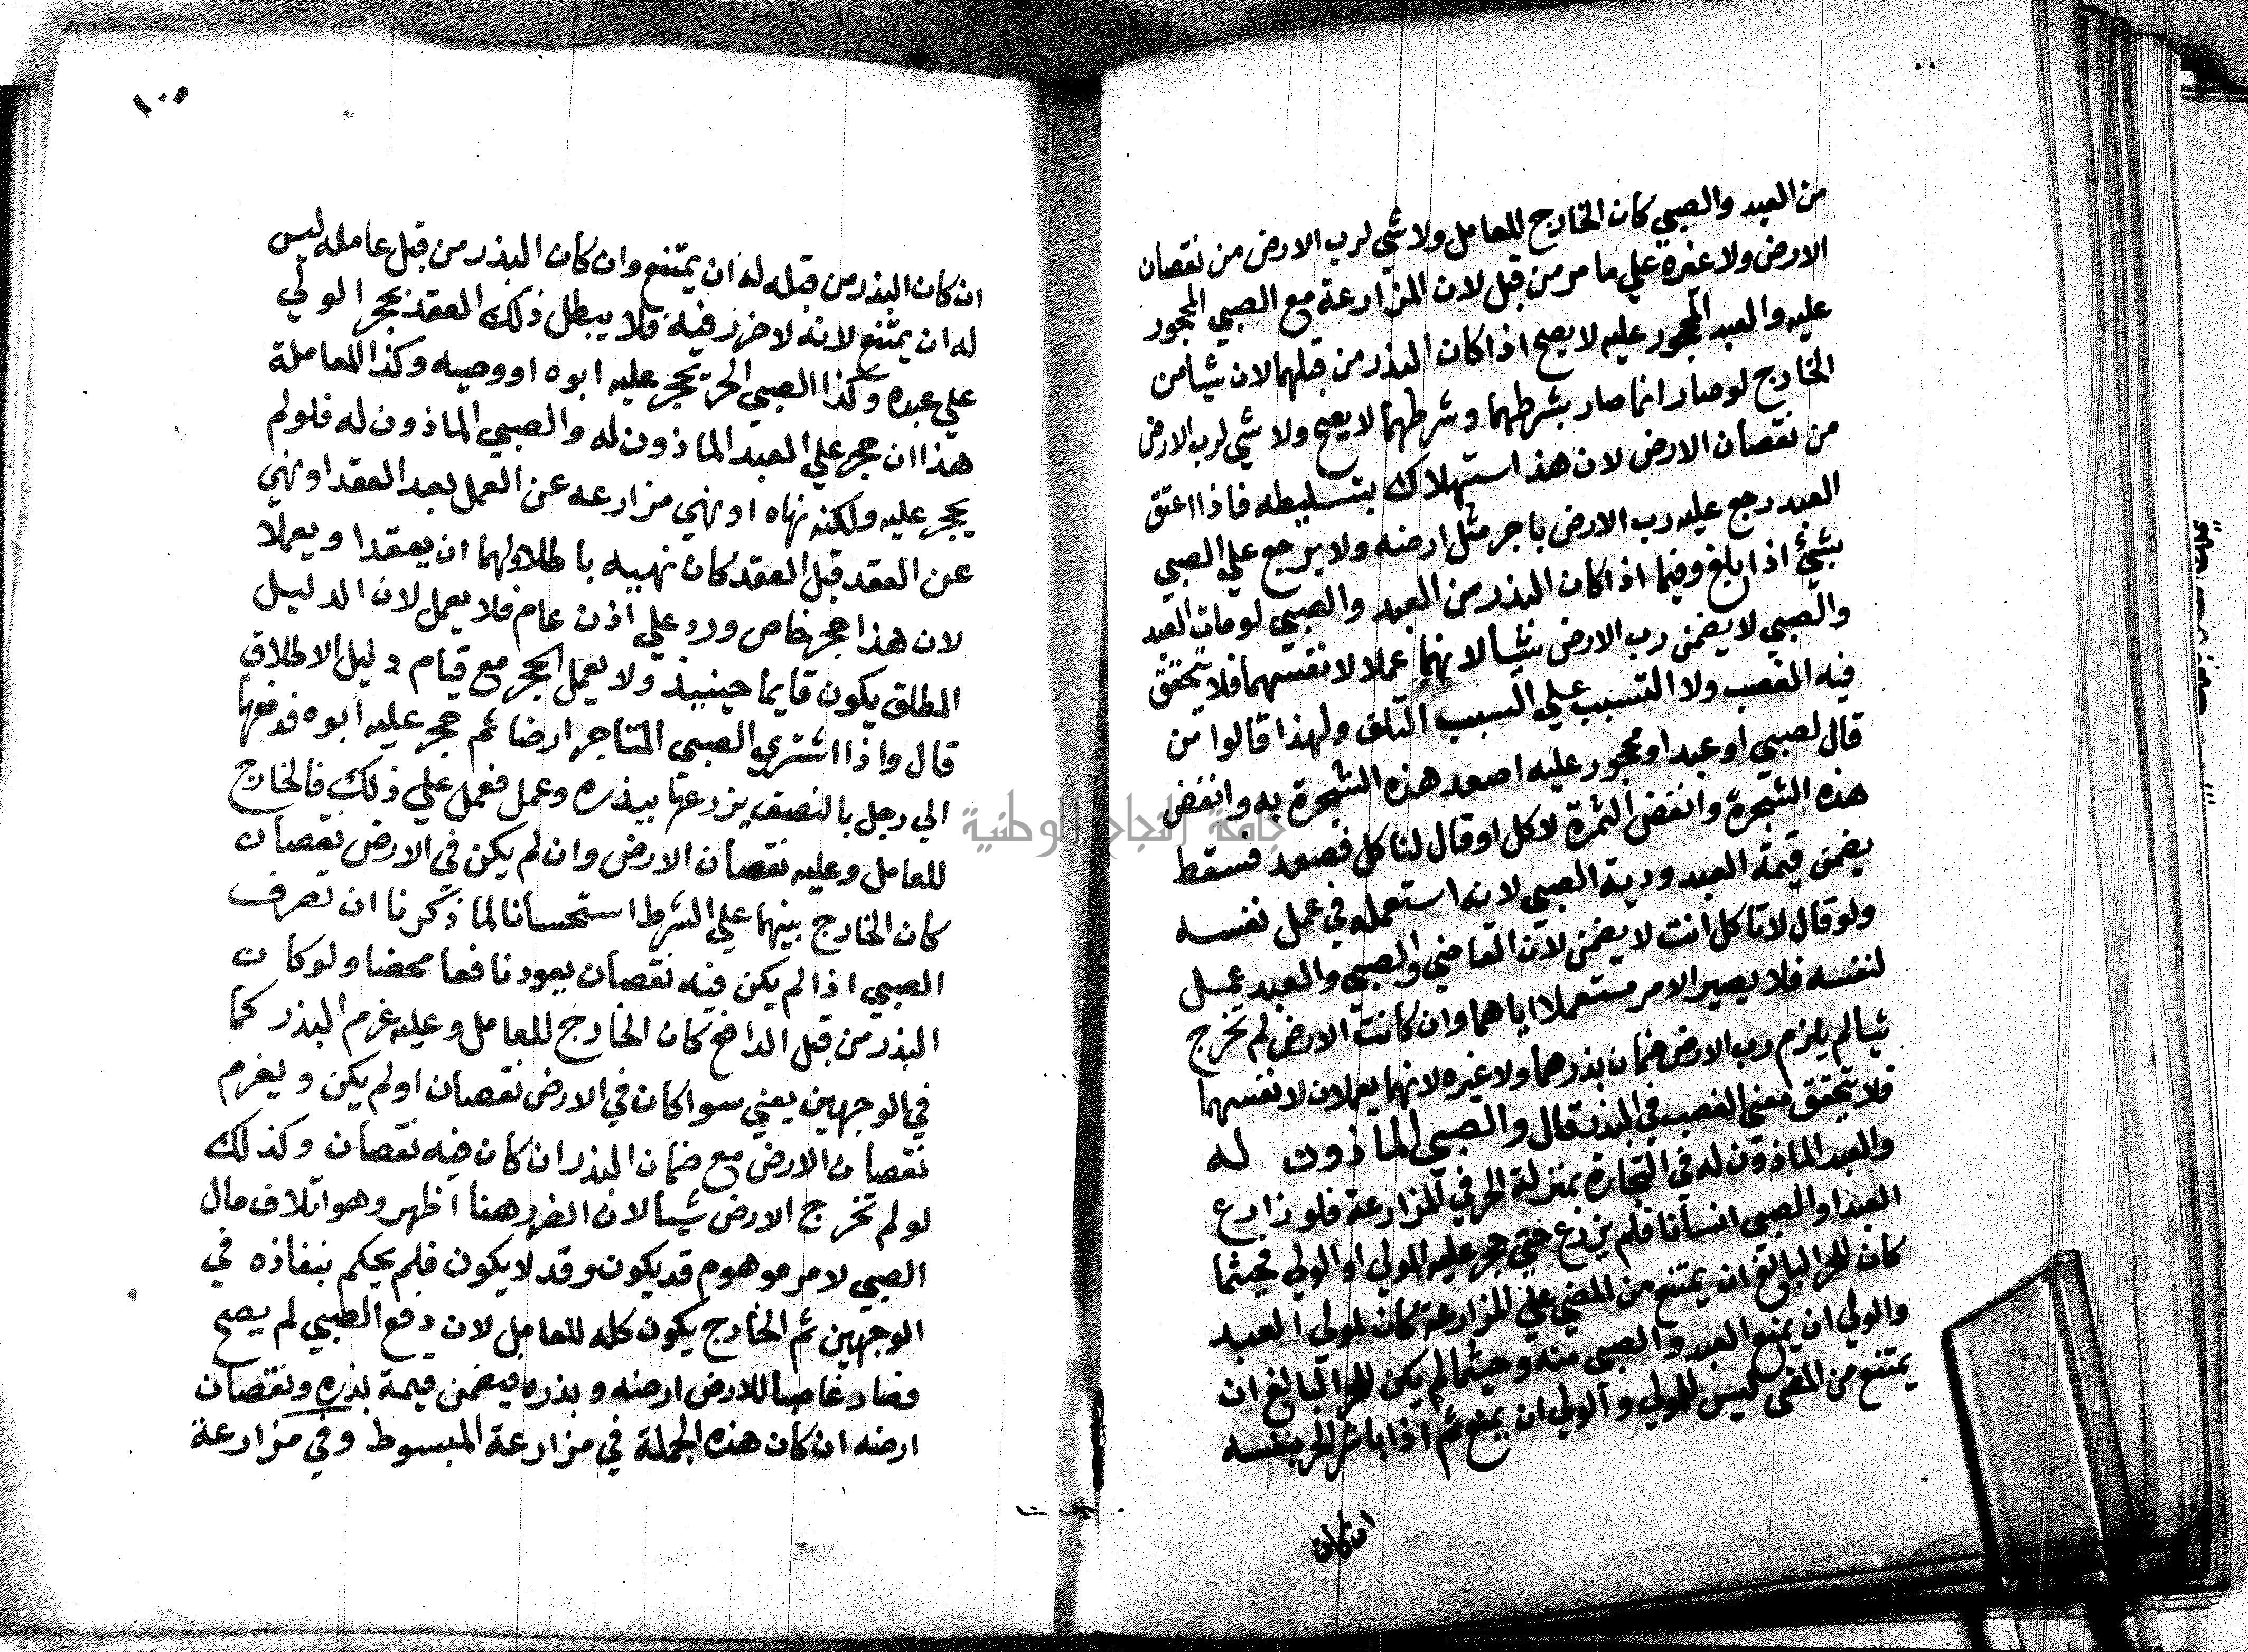 من العبد والصبي كان الخارج للعامل ولا شي لرب الارض من نقصان
الارض ولا غيره علي ما مر من قبل لان المزارعة مع الصبي المحجور
عليه والعبد المحجور عليه لا يصح اذا كان البذر من قبلهما لان شيا من
الخارج لو صار انما صار بشرطهما وشرطهما لا يصح ولا شي لرب الارض
من نقصان الارض لان هذا استهلاك بتسليطه فاذا اعتق
العبد رجع عليه رب الارض باجر مثل ارضه ولا يرجع علي الصبي
بشئ اذا بلغ وفيما اذا كان البذر من العبد والصبي لو مات العبد
والصبي لا يضمن رب الارض شيا لانهما عملا لانفسهما فلا يتحقق
فيه الغصب ولا التسبب علي السبب التلف ولهذا قالوا من
قال لصبي او عبد او محجور عليه اصعد هذه الشجرة به وانفض
هذه الشجرة وانفض الثمرة لاكل او قال لناكل فصعد فسقط
يضمن قيمة العبد ودية الصبي لانه استعمله في عمل نفسه
ولو قال لاتاكل انت لا يضمن لان القاضي والصبي والعبد عمل
لنفسه فلا يصير الامر مستعملا اياهما وان كانت الارض لم تخرج
شيا لم يلزم رب الارض ضمان بذرهما ولا غيره لانهما يعملان لانفسهما
فلا يتحقق معني الغصب في البذر قال والصبي الماذون له
والعبد الماذون له في التجارة بمنزلة الحر في المزارعة فلو زارع
العبد او الصبي انسانا فلم يزرع حتي حجر عليه المولي او الولي فحيثما
كان للحر البالغ ان يمتنع من المضي علي المزارعة كان لمولي العبد
والولي ان يمنع العبد والصبي منه وحيثما لم يكن للحر البالغ ان
يمتنع من المضي ليس للمولي والولي ان يمنع ثم اذا باشر الحر بنفسه
ان كان
١٠٥
ان كان البذر من قبله له ان يمتنع وان كان البذر من قبل عامله ليس
له ان يمتنع لانه لا ضرر فيه فلا يبطل ذلك العقد بحجر المولي
علي عبده وكذا الصبي الحر يحجر عليه ابوه او وصيه وكذا المعاملة
هذا ان حجر علي العبد الماذون له والصبي الماذون له فلو لم
يحجر عليه ولكنه نهاه او نهي مزارعه عن العمل بعد العقد او نهي
عن العقد قبل العقد كان نهييه باطلا ولهما ان يعقدا ويعملا
لان هذا حجر خاص ورد علي اذن عام فلا يعمل لان الدليل
المطلق يكون قايما حينيذ ولا يعمل الحجر مع قيام دليل الاطلاق
قال واذا اشتري الصبي التاجر ارضا ثم حجر عليه ابوه فدفعها
الي رجل بالنصف يزرعها ببذره وعمل فعمل علي ذلك فالخارج
للعامل وعليه نقصان الارض وان لم يكن في الارض نقصان
كان الخارج بينهما علي الشرط استحسانا لما ذكرنا ان تصرف
الصبي اذا لم يكن فيه نقصان يعود نافعا محضا ولو كان
البذر من قبل الدافع كان الخارج للعامل وعليه غرم البذر كما
في الوجهين يعني سوا كان في الارض نقصان او لم يكن ويغرم
نقصان الارض مع ضمان البذر ان كان فيه نقصان وكذلك
لو لم تخرج الارض شيا لان الضرر هنا اظهر وهو اتلاف مال
الصبي لامر موهوم قد يكون وقد لا يكون فلم يحكم بنفاذه في
الوجهين ثم الخارج يكون كله للعامل لان دفع الصبي لم يصح
فصار غاصبا للارض ارضه وبذره فيضمن قيمة بذره ونقصان
ارضه ان كان هذه الجملة في مزارعة المبسوط وفي مزارعة
جامعة النجاح الوطنية